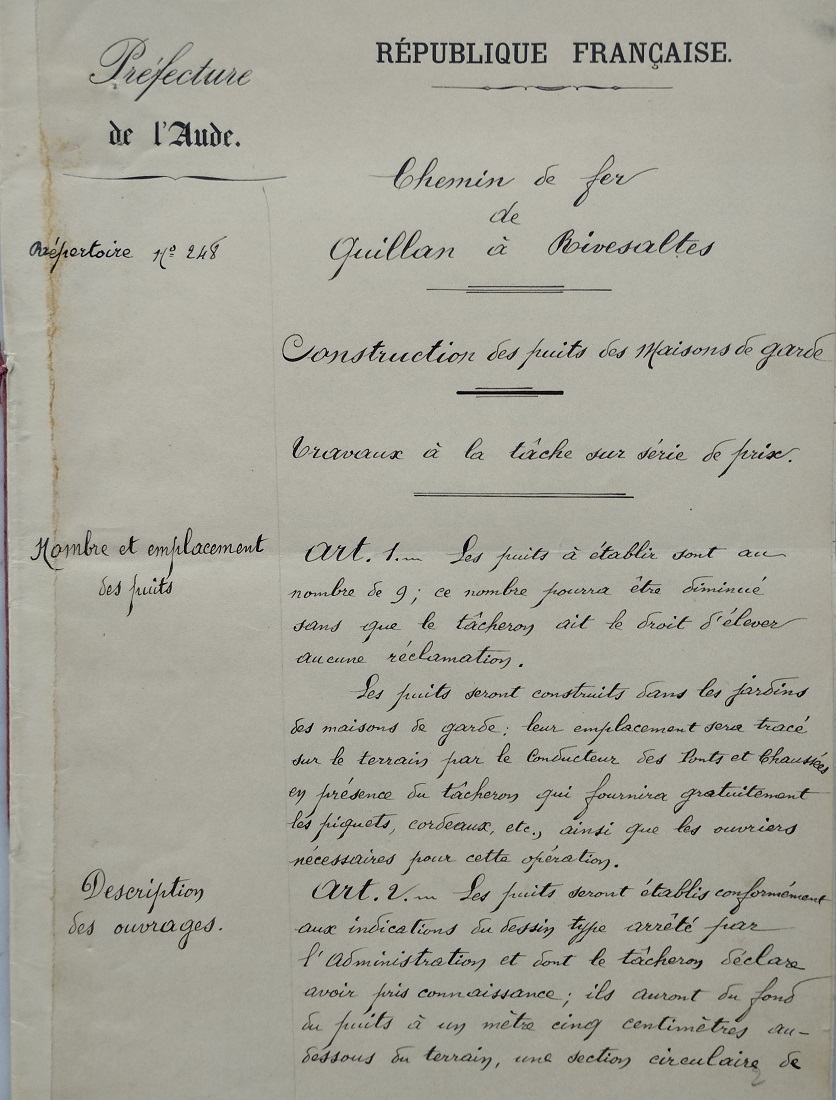 Préfecture
de l'Aude.
RÉPUBLIQUE FRANÇAISE.
Chemin de fer
de
Quillan à Rivesaltes
Répertoire Nº 248
Construction des puits des Maisons de garde
Travaux à la tâche sur série de prix.
Nombre et emplacement
des puits
Art. 1. — Les puits à établir sont au
nombre de 9; ce nombre pourra être diminué
sans que le tâcheron ait le droit d'élever
aucune réclamation.
Les puits seront construits dans les jardins
des maisons de garde; leur emplacement sera tracé
sur le terrain par le Conducteur des Ponts et Chaussées
en présence du tâcheron qui fournira gratuitement
les piquets, cordeaux, etc., ainsi que les ouvriers
nécessaires pour cette opération.
Description
des ouvrages.
Art. 2. — Les puits seront établis conformément
aux indications du dessin type arrêté par
l'Administration et dont le tâcheron déclare
avoir pris connaissance; ils auront du fond
du puits à un mètre cinq centimètres au-
dessous du terrain, une section circulaire de